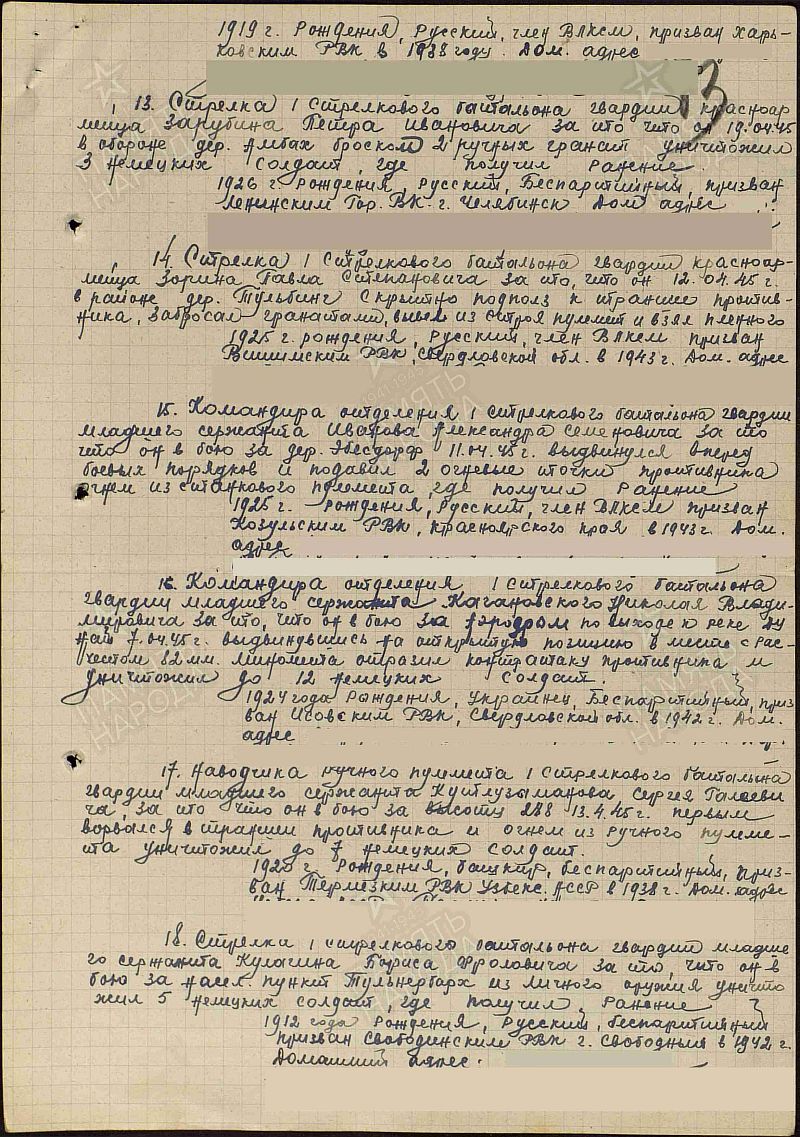 1919 г. Рождения, Русский, член ВЛКСМ, призван Харь-
ковским РВК в 1938 году. Дом. адрес
13
13. Стрелка 1 стрелкового батальона гвардии красноар
мейца Зарубина Петра Ивановича за то что он 19.04.45
в обороне дер. Амбах броском 2 ручных гранат уничтожил
3 немецких солдат, где получил ранение.
1926 г. Рождения, Русский, Беспартийный, призван
Ленинским Гор. ВК г. Челябинск Дом адрес
14. Стрелка 1 стрелкового батальона гвардии красноар-
мейца Зорина Павла Степановича за то, что он 12.04.45 г.
в районе дер. Тульбинг скрытно подполз к траншее против-
ника, забросал гранатами, вывел из строя пулемет и взял пленного
1925 г. рождения, Русский, член ВЛКСМ призван
Висимским РВК, Свердловской обл. в 1943 г. Дом. адрес
15. Командира отделения 1 стрелкового батальона гвардии
младшего сержанта Иванова Александра Семеновича за то
что он в бою за дер. Эбесдорф 11.04.45 г. выдвинулся вперед
боевых порядков и подавил 2 огневые точки противника
огнем из станкового пулемета, где получил ранение
1925 г. рождения, Русский, член ВЛКСМ призван
Козульским РВК, Красноярского края в 1943 г. Дом.
адрес
16. Командира отделения 1 стрелкового батальона
гвардии младшего сержанта Кагановского Николая Влади-
мировича за то, что он в бою за аэродром по выходе к реке Ду
най 7.04.45 г. выдвинувшись на открытую позицию в месте с рас-
четом 82 мм. миномета отразил контратаку противника и
уничтожил до 12 немецких солдат.
1924 года рождения, Украинец, Беспартийный, приз
ван Исовским РВК, Свердловской обл. в 1942 г. Дом.
адрес
17. Наводчика ручного пулемета 1 стрелкового батальона
гвардии младшего сержанта Кутлузыманова Сергея Галееви
ча, за то что он в бою за высоту 288 13.4.45 г. первым
ворвался в траншеи противника и огнем из ручного пулеме-
та уничтожил до 7 немецких солдат.
1920 г. рождения, башкир, беспартийный, приз-
ван Термезким РВК Узбекс. АССР в 1938 г. Дом. адрес
18. Стрелка 1 стрелкового батальона гвардии младше
го сержанта Кулагина Бориса Фроловича за то, что он в
бою за насел. пункт Тульнербарх из личного оружия уничто
жил 5 немецких солдат, где получил ранение
1912 года рождения, Русский, беспартийный
призван Свободинским РВК г. Свободный в 1942 г.
Домашний адрес.